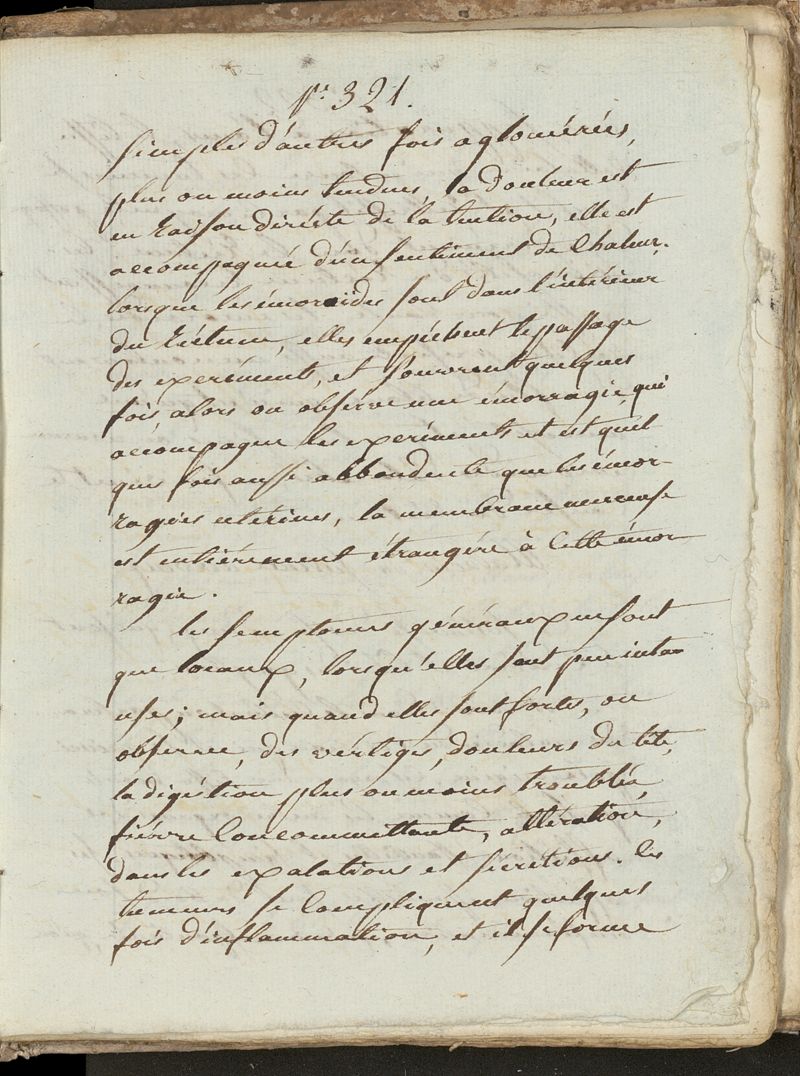 ps. 321.
simples d'autres fois aglomérées,
plus ou moins tendues, la douleur est
en Raison diréste de la tention, elle est
accompagnée d'un sentiment de Chaleur.
lorsque les émoroïdes sont dans l'intérieur
du Réctum, elles empéchent le passage
des experéments, et s'ouvrent quelques
fois, alors on observe une émorragie, qui
accompagne les experiments et est quel
que fois aussi abbondente que les émor-
ragies uterines, la membrane muceuse
est entiérement étrangére à Cette émor-
ragie.
les semptomes généraux ne sont
que locaux, lorsqu'elles sont peu inten
uses; mais quand elles sont fortes, on
observe, des vértiges, douleurs de tête,
la digéstion plus ou moins troublée,
fièvre Concommittante, altération,
dans les exalations et sécretions. les
tumeurs se Compliquent quelques
fois d'inflammation, et il se forme